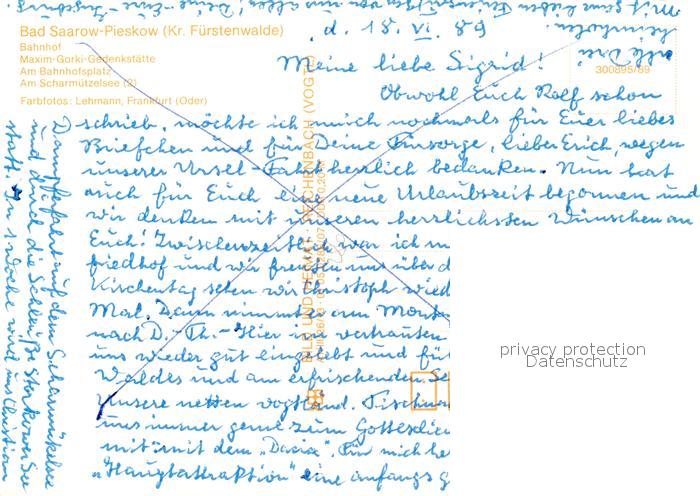 Bad Saarow-Pieskow (Kr. Fürstenwalde)
Bahnhof
Maxim-Gorki-Gedenkstätte
Am Bahnhofsplatz
Am Scharmützelsee (2)
Farbfotos: Lehmann, Frankfurt (Oder)
300895/89
d. 18. VI. 89
Meine liebe Sigrid!
Obwohl Euch Rolf schon
schrieb, möchte ich mich nochmals für Euer liebes
Briefchen und für Deine Fürsorge, lieber Erich, wegen
unserer Ursel-Fahrt herzlich bedanken. Nun hat
auch für Euch eine neue Urlaubszeit begonnen und
wir denken mit unseren herzlichsten Wünschen an
Euch! Zwischenzeitlich war ich
friedhof und wir freuten uns über d
Kirchentag sehen wir Christoph wied
Mal. Dann nimmt er am Mont
nach D.-Th.- Hier im vertrauten
uns wieder gut eingelebt und fü
Waldes und am erfrischenden Se
Unsere netten vogtländ. Tischna
uns immer gerne zum Gottesdie
mit mit dem „Dacia". Für mich
„Hauptattraktion" eine anfangs g
Dampferfahrt auf dem Scharmützelsee
und durch die Schleuße Storkower See
statt. In 1 Woche wird uns Christian
heimholen.
Mit ganz lieben
BILD UND HEIMAT REICHENBACH (VOGTL)
privacy protection
Datenschutz